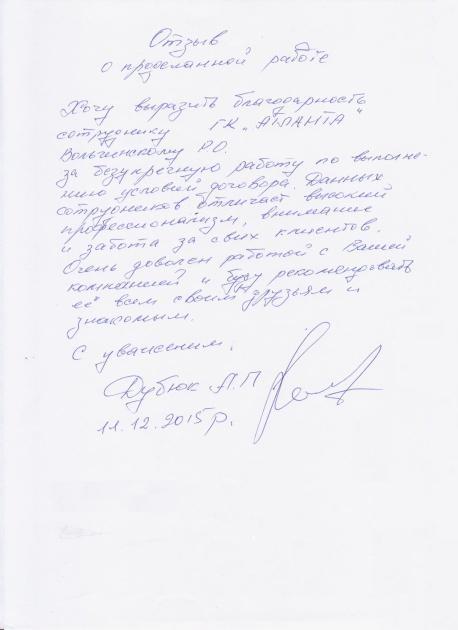 Отзыв
о проделанной работе
Хочу выразить благодарность
сотруднику ГК „АТЛАНТА"
Вольчинскому Р.О.
за безукречную работу по выполне-
нию условий договора. Данных
сотрудников отличает высокий
профессионализм, внимание
и забота за своих клиентов.
Очень доволен работой с Вашей
компанией и буду рекомендовать
её всем своим друзьям и
знакомым.
С уважением,
Дубюк А.П
11.12.2015 р.